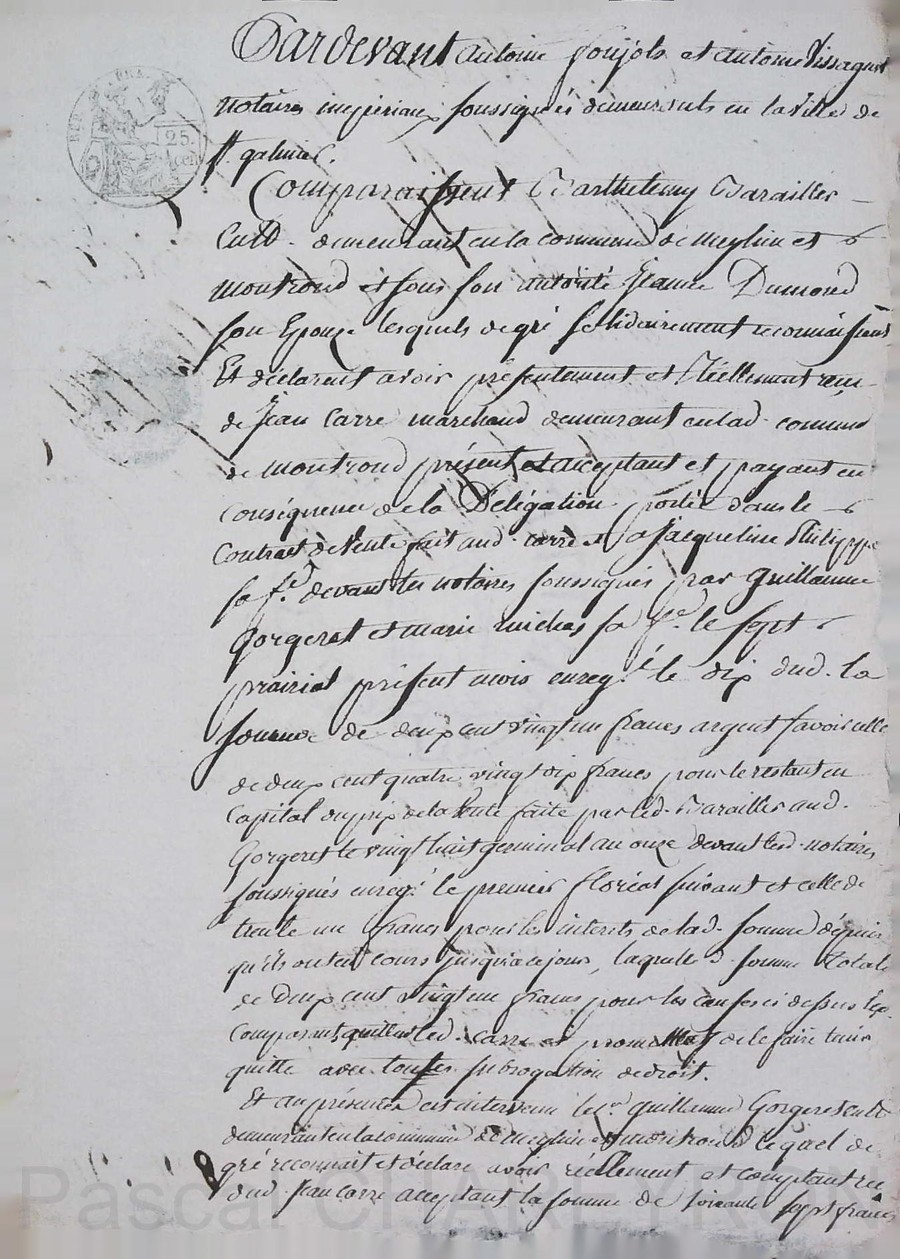 Pardevant Antoine Poujols et antoine Vissaguet
notaires imperiaux soussignés demeurants en la ville de
St. galmier.
Comparaissent Barthelemy Barailler
Cult. demeurant en la commune de Meylieu et
montrond et sous son autorité Jeanne Dumond
son Epouze lesquels de gré solidairement reconnaissent
Et déclarent avoir présentement et Réellement reçu
de Jean Carre marchand demeurant en lad. commune
de montrond présent et acceptant et payant en
conséquence de la Délégation portée dans le
Contrat de Vente fait aud. carre et a Jacqueline Philippe
sa fe. devant les notaires soussignés par Guillaume
Gorgeret et marie sa fe. le sept
prairial présent mois enreg.t le dix dud. la
somme de deux cent vingt un francs argent savoir celle
de deux cent quatre vingt dix francs pour le restant en
Capital du prix de la Vente faite par led. Barailler aud.
Gorgeret le vingt huit germinal an onze devant lesd. notaires
soussignés enreg.t le premier floréal suivant et celle de
trente un francs pour les interets de lad. somme depuis
qu'ils ont eu cours jusqu'a ce jour, laquelle d. somme Totale
de Deux cent vingt un francs pour les causes ci dessus les
Comparants quittent led. Carre et promettent de le faire tenir
quitte avec toutes subrogation de droit.
Et au présent est intervenu le sr. guillaume Gorgeret cult.
demeurant en la commune de meylieu et montrond lequel de
gré reconnait et déclare avoir réellement et comptant reçu
dud. Jean Carre acceptant la somme de soixante sept francs
25
Pascal CHAR RON